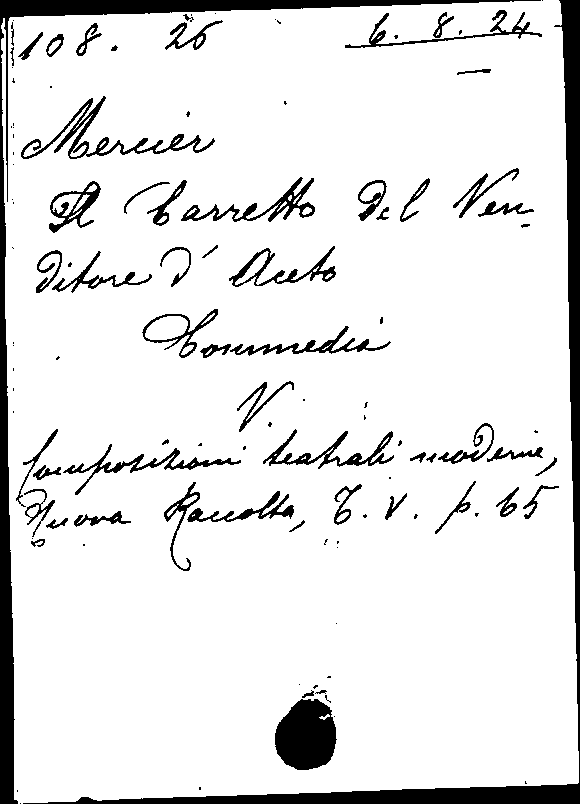 108. 26 6. 8. 24
Mercier
Il Carretto del Ven-
ditore d' Aceto
Commedia
V.
Composizioni teatrali moderne,
Nuova Raccolta, T. V. p. 65